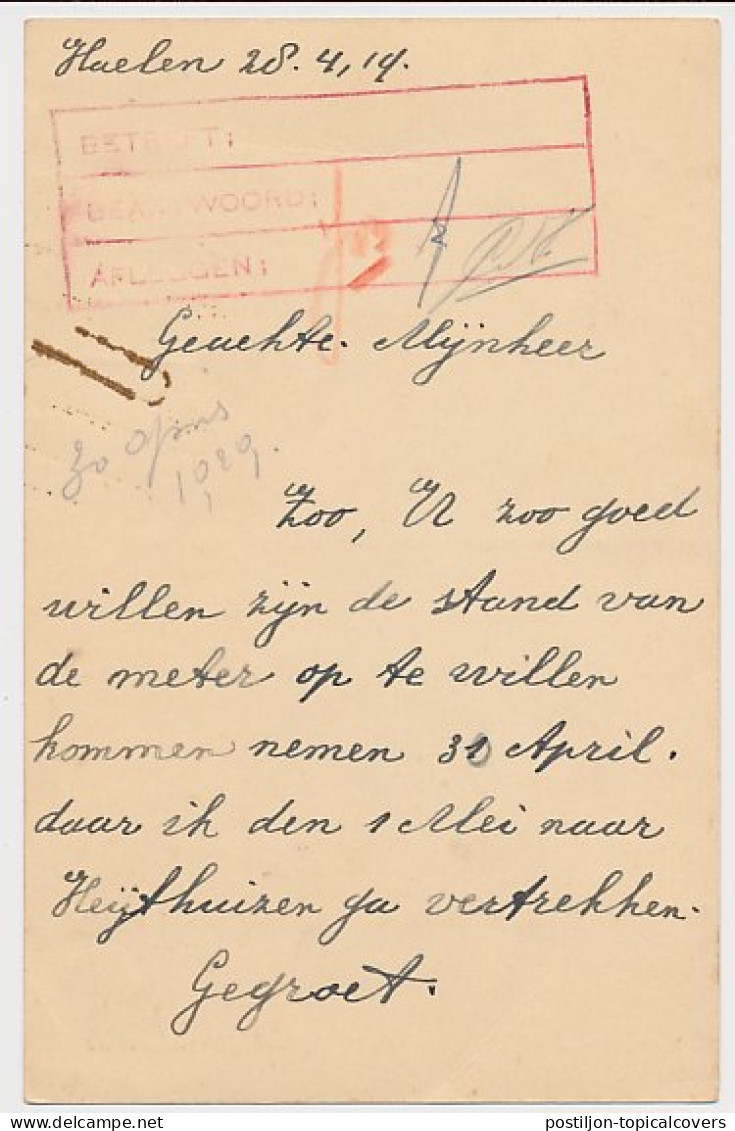 Haelen 28.4,14.
BETREFT:
BEANTWOORD:
AFLEGGEN:
Geachte. Mijnheer
1029.
Zoo, U zoo goed
willen zijn de stand van
de meter op te willen
kommen nemen 30 April.
daar ik den 1 Mei naar
Heijthuizen ga vertrekken.
Gegroet.
www.delcampe.net
postiljon-topicalcovers